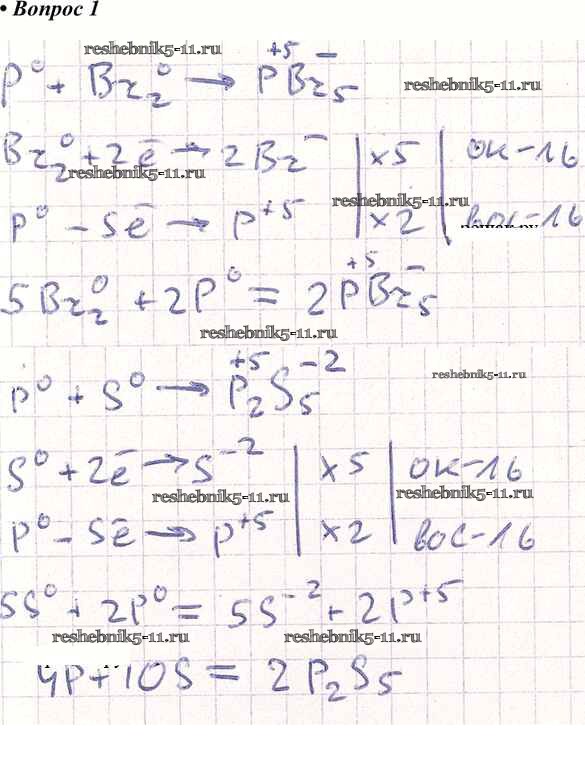 • Вопрос 1
reshebnik5-11.ru
P⁰ + Br₂⁰ → P⁺⁵Br₅⁻
reshebnik5-11.ru
Br₂⁰ + 2ē → 2Br⁻ | ×5 | ок-ль
reshebnik5-11.ru
reshebnik5-11.ru
P⁰ - 5ē → P⁺⁵ | ×2 | вос-ль
5Br₂⁰ + 2P⁰ = 2P⁺⁵Br₅⁻
reshebnik5-11.ru
P⁰ + S⁰ → P₂⁺⁵S₅⁻²
reshebnik5-11.ru
S⁰ + 2ē → S⁻² | ×5 | ок-ль
reshebnik5-11.ru
reshebnik5-11.ru
P⁰ - 5ē → P⁺⁵ | ×2 | вос-ль
5S⁰ + 2P⁰ = 5S⁻² + 2P⁺⁵
reshebnik5-11.ru
reshebnik5-11.ru
4P + 10S = 2P₂S₅